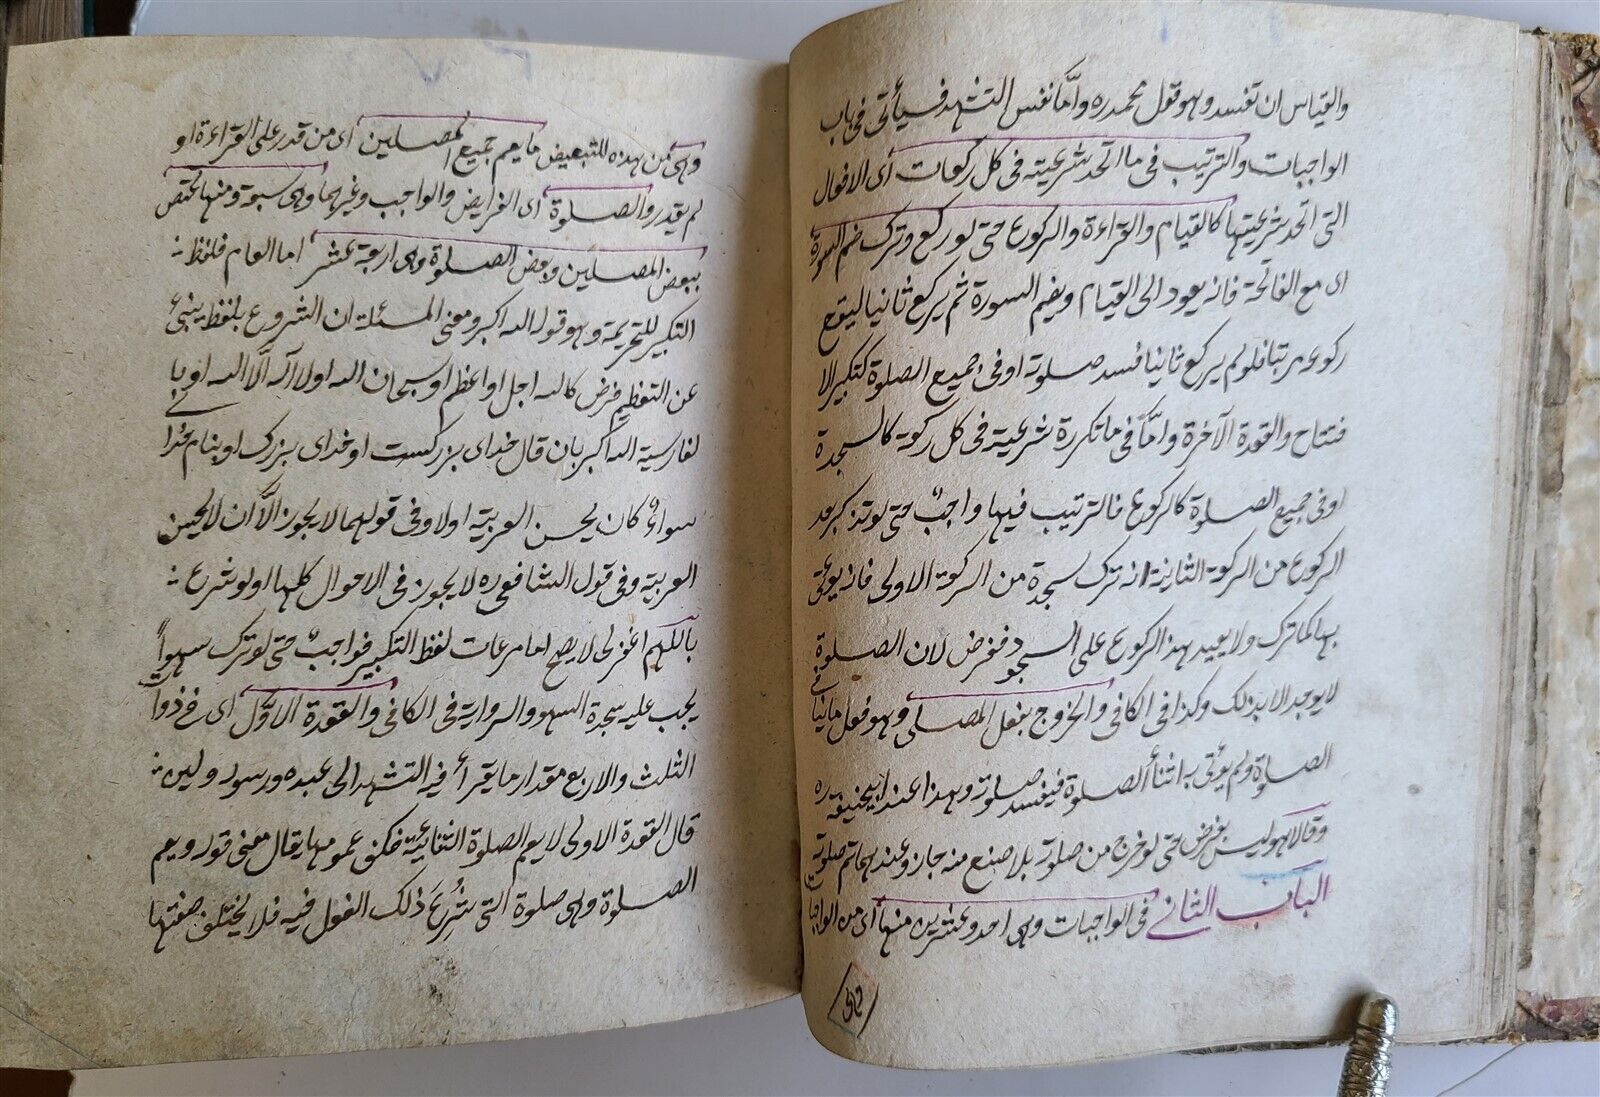 والقياس ان تفسد وهو قول محمد ره واما نفس التشهد فسيأتى فى باب
الواجبات والترتيب فى ما اتحد شرعيته فى كل ركعات أى الافعال
التى اتحد شرعيتها كالقيام والقراءة والركوع حتى لو ركع وترك ضم السورة
اى مع الفاتحة فانه يعود الى القيام ويضم السورة ثم يركع ثانيا ليقع
ركوعه مرتبا فلو لم يركع ثانيا فسد صلوته او فى جميع الصلوة كتكبير الا
فتتاح والقعدة الآخرة وامّا فى ما تكررة شرعيته فى كل ركعة كالسجدة
او فى جميع الصلوة كالركوع فالترتيب فيها واجبٌ حتى لو تذكر بعد
الركوع من الركعة الثانية انه ترك سجدة من الركعة الاولى فانه يؤتى
بها كما ترك ولا يعيد هذا الركوع على السجود ففرض لان الصلوة
لا يوجد الا بذلك وكذا فى الكافى والخروج بفعل المصلى وهو فعل ما ينافى
الصلوة ولم يؤتى به اثنأ الصلوة فيفسد صلوته وهذا عند ابيحنيفه ره
وقالا هو ليس بفرض حتى لو خرج من صلوته بلا صنع منه جاز وعندهما تم صلوته
الباب الثانى فى الواجبات وهى احد وعشرين منها أى من الواجبا
وهى
وهى من هذه للتبعيض ما يعم جميع المصلين اى من قدر على القراءة او
لم يقدر والصلوة اى الفرايض والواجب وغيرها وهى سبعة ومنها تختص
ببعض المصلين وبعض الصلوة وهى اربعة عشر اما العام فلفظ
التكبير للتحريمة وهو قوله الله اكبر ومعنى المسئلة ان الشروع بلفظ ينبئ
عن التعظيم فرض كالله اجل او اعظم او سبحان الله او لا اله الّا الله او با
لفارسية الله اكبر بان قال خداى بزركست او خداى بزرك او بنام خدا
سواءٌ كان يحسن العربية اولا وفى قولهما لا يجوز الّا ان لا يحسن
العربية وفى قول الشافعى ره لا يجوز فى الاحوال كلها اولو شرع
باللّهم اغفر لى لا يصح اما مرعات لفظ التكبير فواجبٌ حتى لو ترك سهواً
يجب عليه سجدة السهو والرواية فى الكافى والقعدة الاوّل اى فى ذوات
الثلث والاربع مقدار ما يقرأ فيه التشهد الى عبده ورسوله ولين
قال القعدة الاولى لا يعم الصلوة الثنائية فكيف عمومها يقال معنى قوله ويعم
الصلوة وهى صلوة التى شُرِعَ ذلك الفعل فيه فلا يختلف صفتها